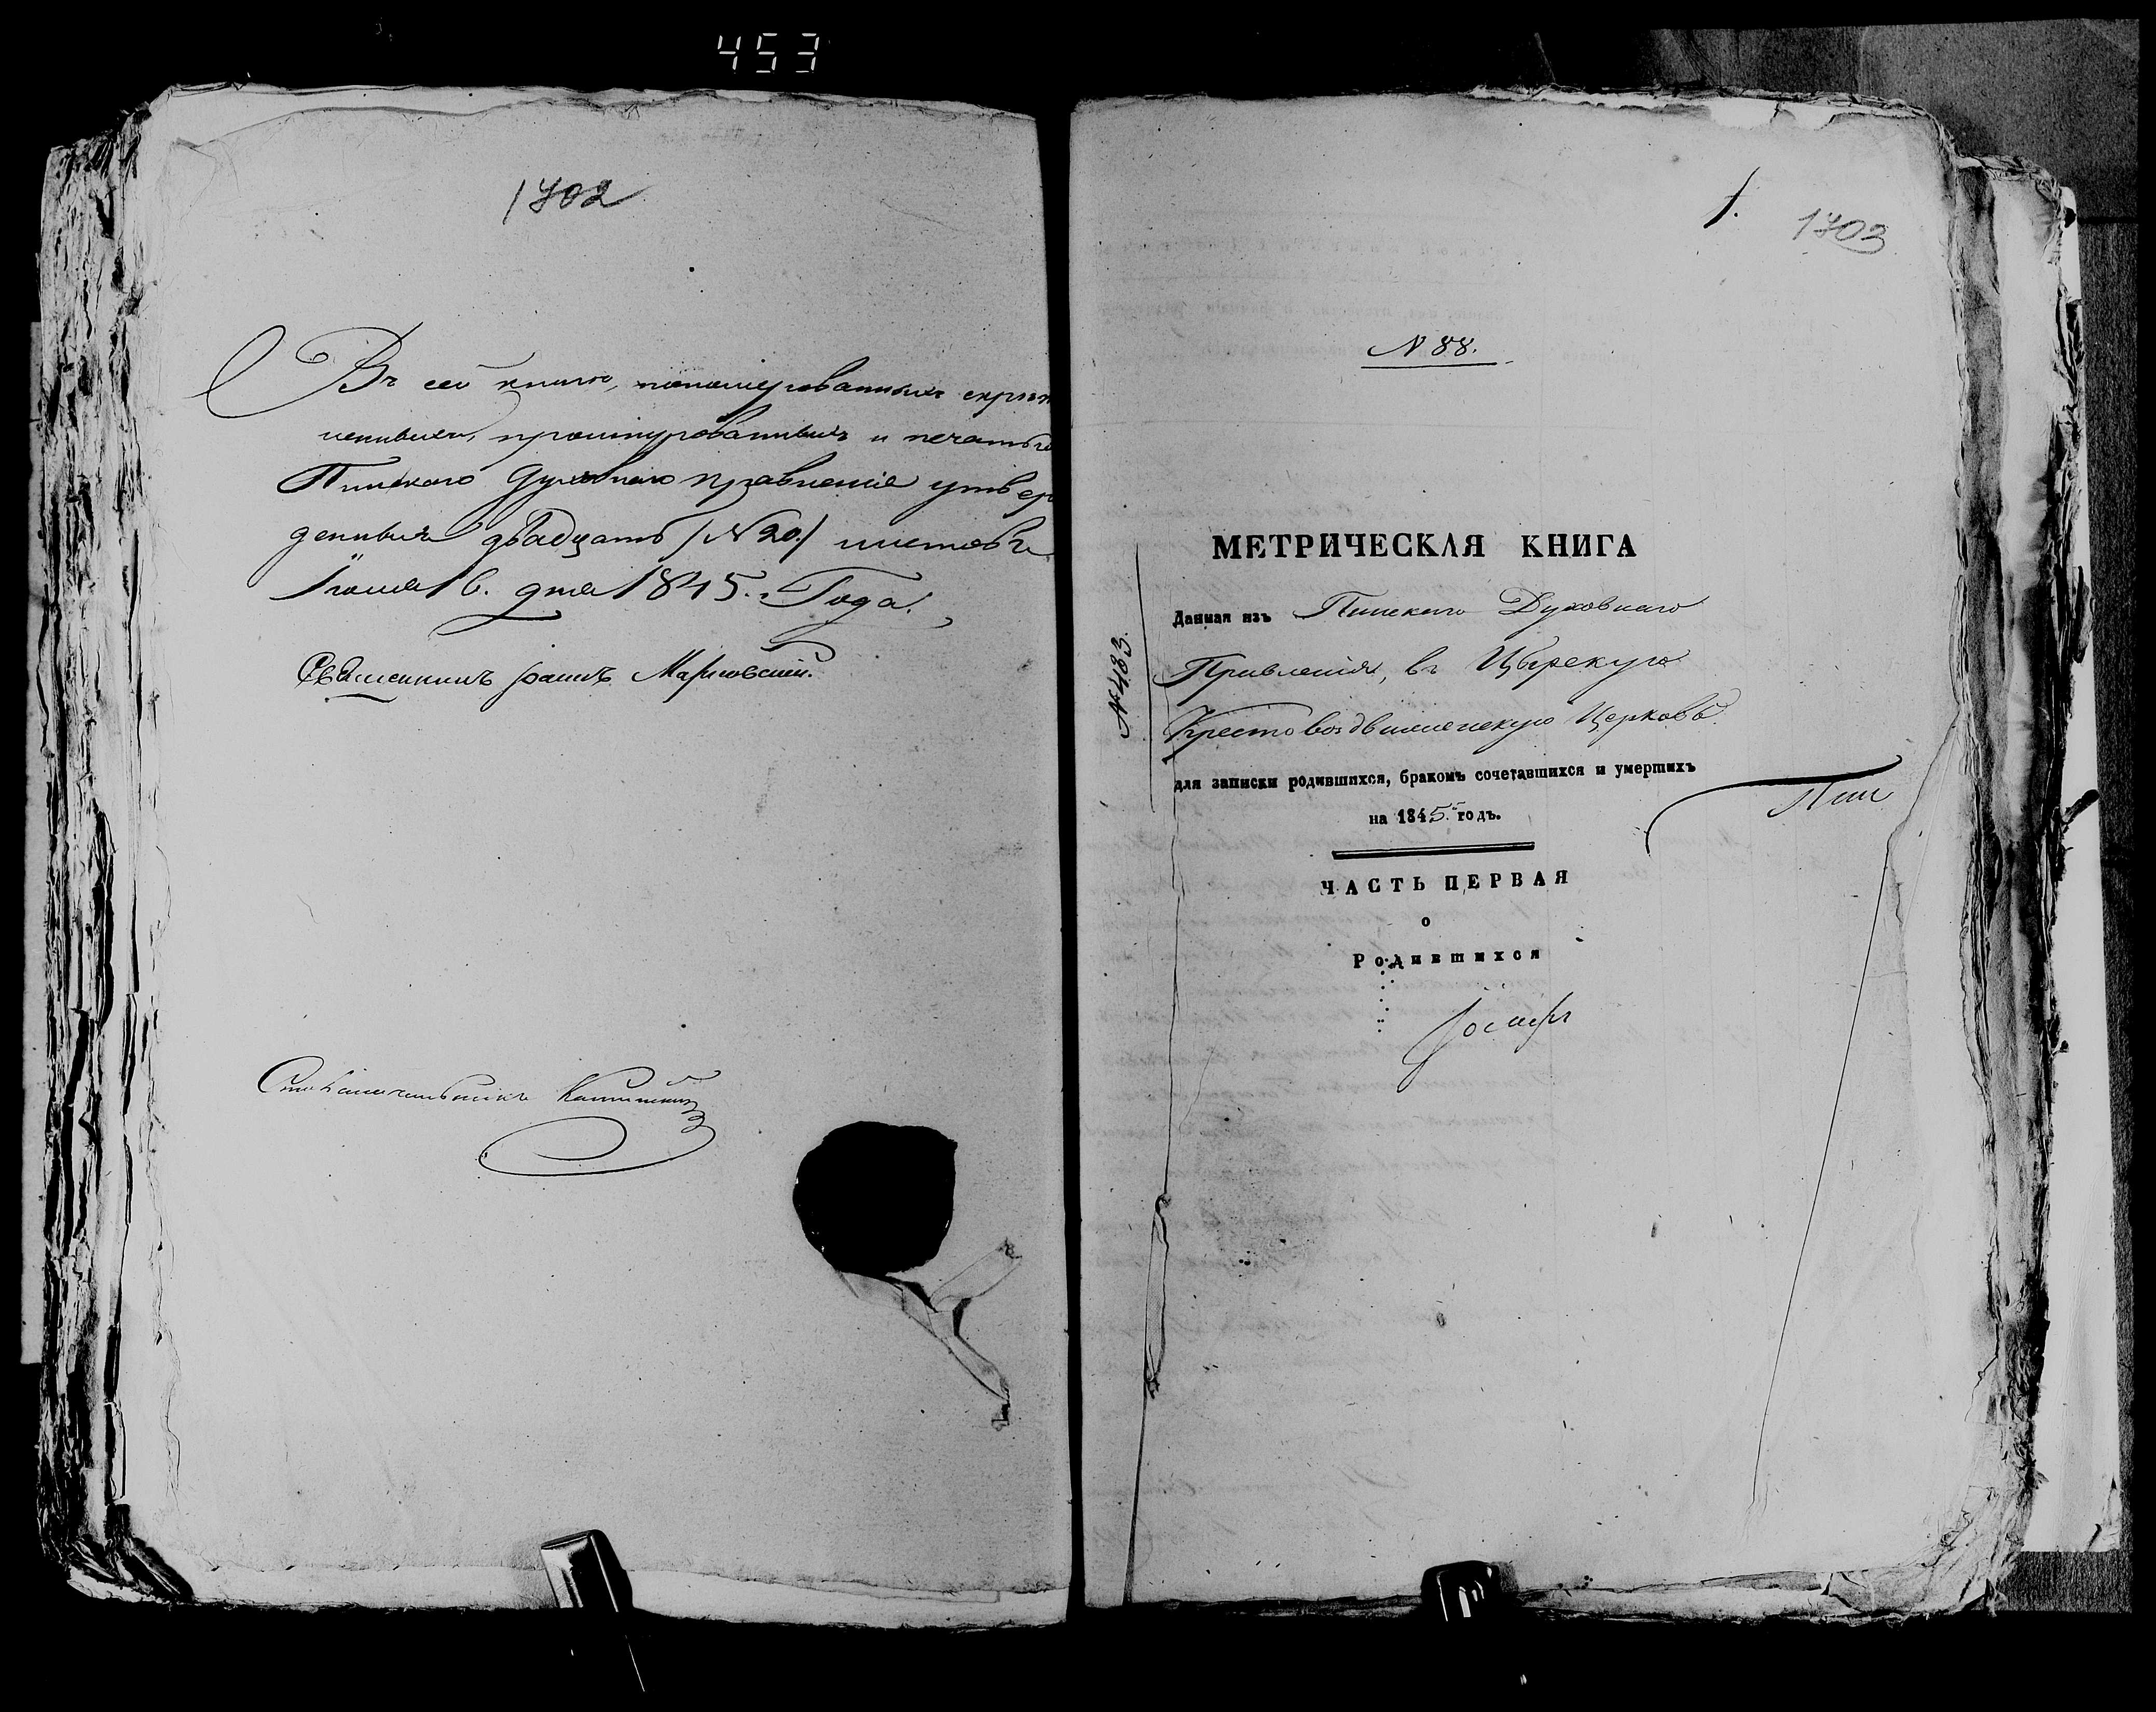 453
1702
Въ сей книгѣ, пономерованныхъ скрѣп
ленныхъ, прошнурованныхъ и печатью
Пинскаго Духовнаго Правленія утвер
денныхъ двадцать (N 20.) листовъ
дня 1845. Года.
Священникъ Іоаннъ
Столоначальникъ
1. 1703
N 88.
МЕТРИЧЕСКАЯ КНИГА
Данная изъ Пинскаго Духовнаго
Правленія, въ Цырскую
Крестовоздвиженскую Церковь.
для записки родившихся, бракомъ сочетавшихся и умершихъ
на 1845. годъ.
N 483.
Пин
ЧАСТЬ ПЕРВАЯ
о
Родившихся
Іосифъ